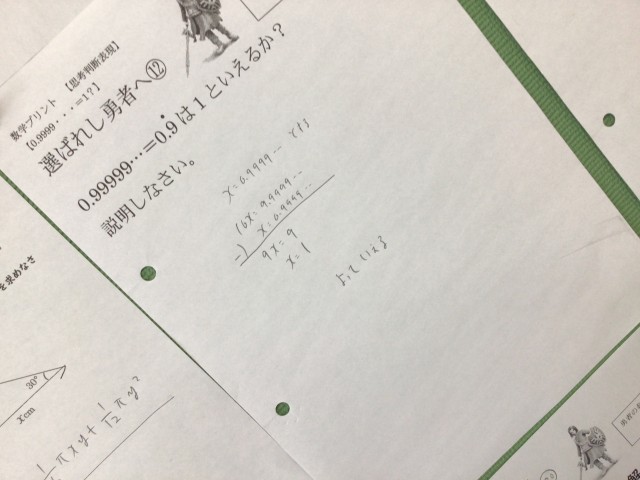 数学プリント 【思考判断表現】
【0.9999・・・=1?】
選ばれし勇者へ⑫
0.99999…=0.9̇は1といえるか?
説明しなさい。
x=0.9999… とする
10x=9.9999…
-) x=0.9999…
9x=9
x=1
よっていえる
を求めなさ
30°
xcm
πxy+1/12πy²
勇者の